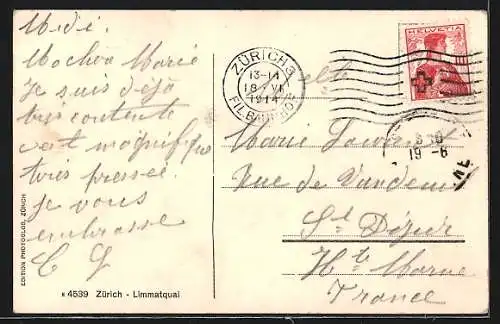 Midi.
Ma chère Marie
Je suis déjà
très contente
c'est magnifique
très pressée.
je vous
embrasse
C G
EDITION PHOTOGLOB, ZÜRICH
K 4539 Zürich - Limmatquai
ZÜRICH 3
13-14
18 VI
1914
FIL. BAHNHOF
HELVETIA
19-6
Marie
Rue de
St Dizier
Hte Marne
France